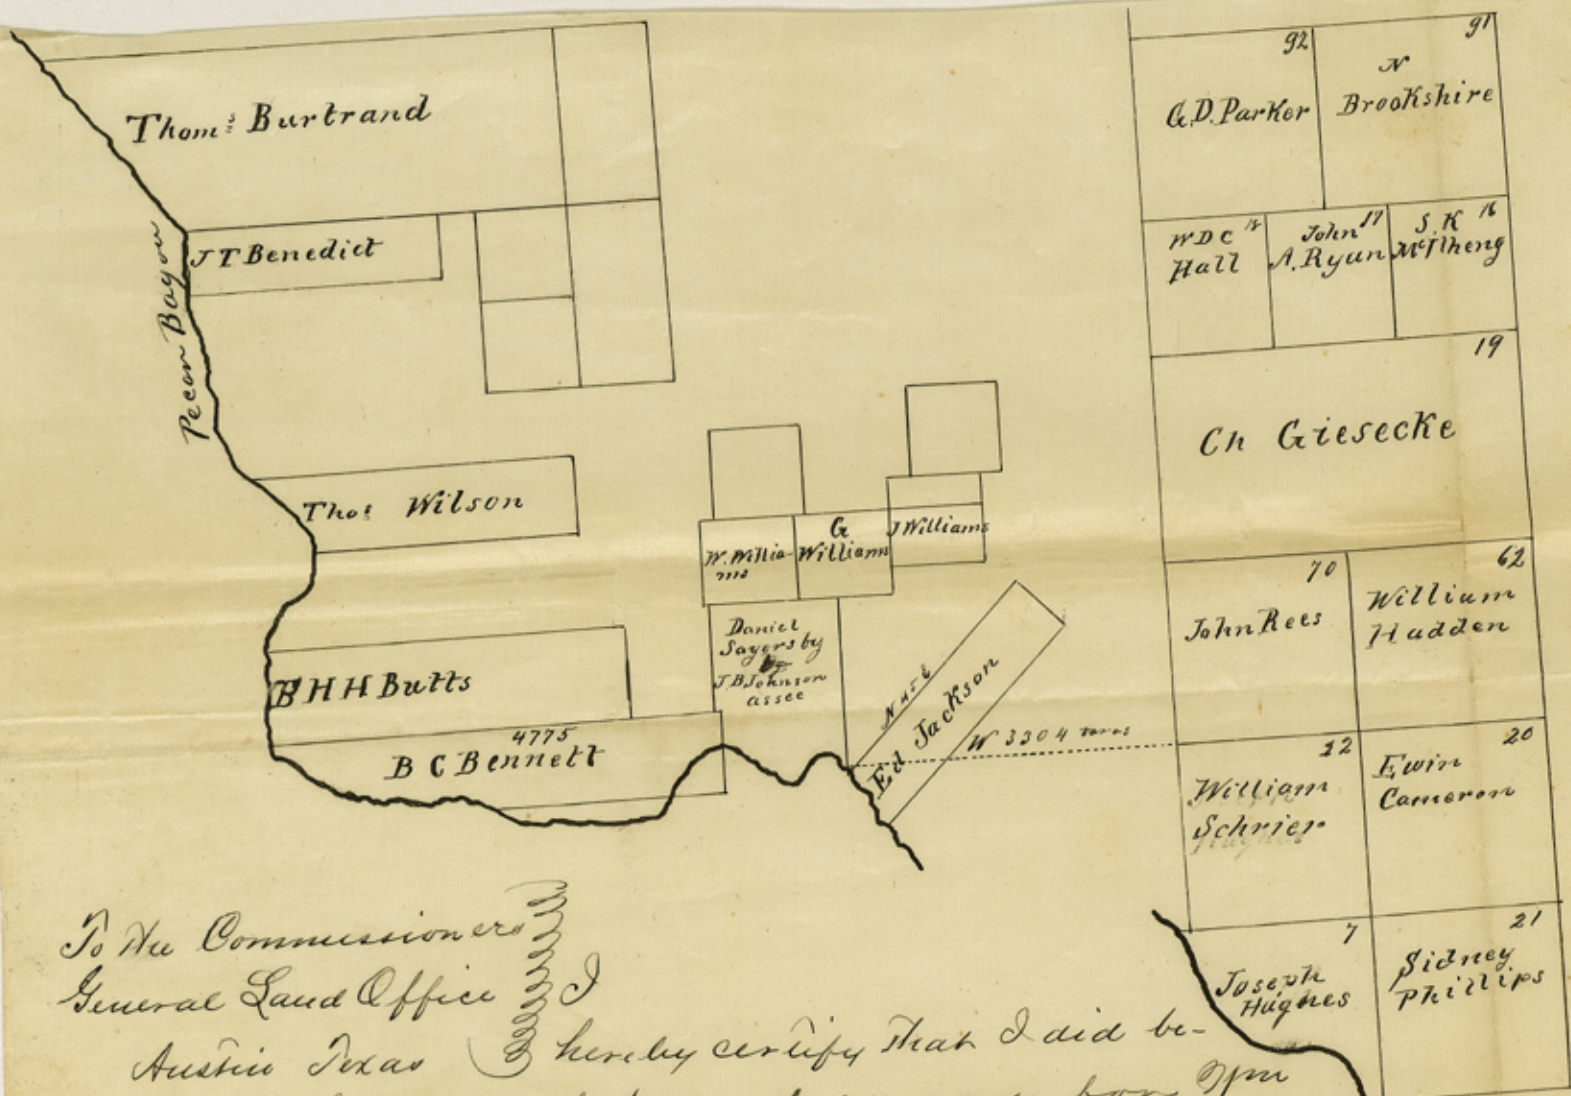 Thom.s Burtrand
J T Benedict
Pecan Bayou
Tho.s Wilson
B H H Butts
4775
B C Bennett
W. Willia-
ms
G
Williams
J Williams
Daniel
Sayers by
J. B. Johnson
assee
N 45 E
Ed Jackson
W 3304 varas
92
G. D. Parker
91
N
Brookshire
W D C
Hall
17
John
A. Ryan
16
S. K
19
Ch Giesecke
70
John Rees
62
William
Hadden
12
William
Schrier
20
Ewin
Cameron
7
Joseph
Hughes
21
Sidney
Phillips
To the Commissioners
General Land Office
Austin Texas
I
hereby certify that I did be-